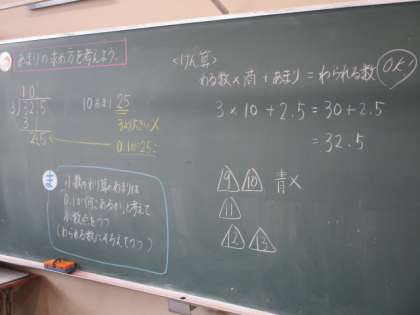 あまりの求め方を考えよう。
10
3)32.5
3
2.5
10あまり25
3より大きい×
0.1が25こ
ま
小数のわり算のあまりは
0.1が何こあるか、と考えて
小数点をうつ
(わられる数にそろえてうつ)
<けん算>
わる数×商+あまり=わられる数
OK!
3×10+2.5=30+2.5
=32.5
9 10 青×
11
12 13